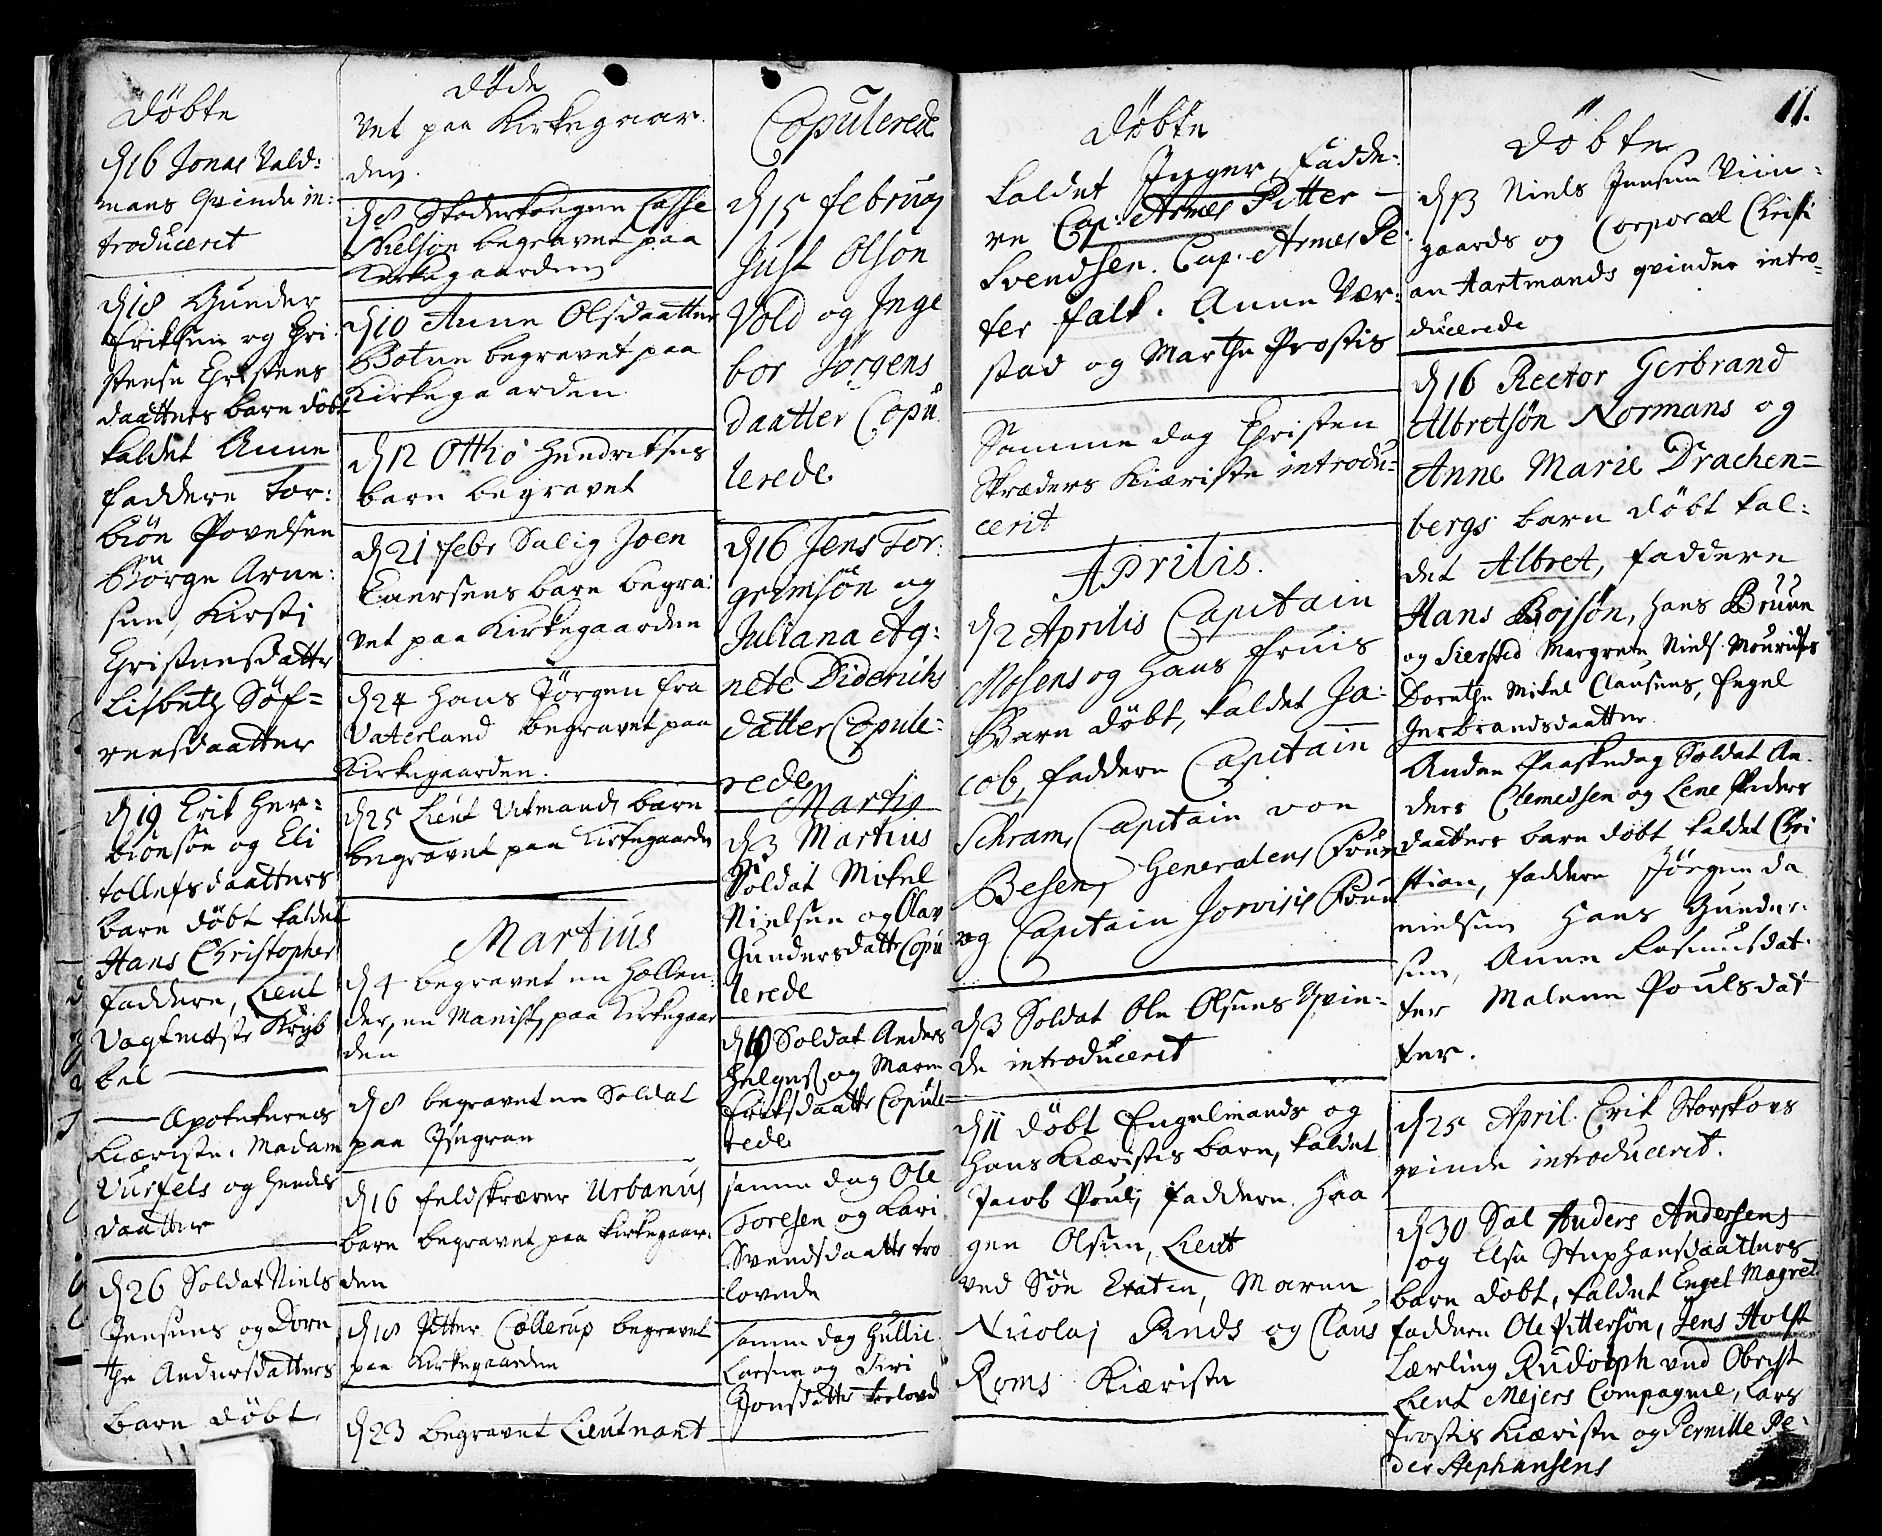 Döbte
d 16 Jonas Vald:
mans Qvinde in:
troduceret
d 18 Gunder
Eriksen og Chri
stense Christens
daatters barn döbt
kaldet Anne
faddere Tor:
biön Povelsen
Börge Arne:
sen, Kirsti
Christensdatter
Lisbeth Söf=
rensdaatter
d 19 Erik Her=
biönsön og Eli
tollefsdaatters
barn döbt kaldet
Hans Christopher
faddere, Lieut
Vagtmester Kryb
bel
Apotekerens
Kiæriste. Madam
Vurfels og hendes
daatter
d 26 Soldat Niels
Jensens og Dore
the Andersdatters
barn döbt,
Döde
vet paa Kirkegaar
den
d 8 Skoderkongen Lasse
Nielsön begravet paa
Kirkegaarden
d 10 Anne Olsdaatter
Botne begravet paa
Kirkegaarden
d 12 Ottho Hendriksens
barn begravet
d 21 febr Salig Joen
Enersens barn begra:
vet paa Kirkegaarden
d 24 Hans Jörgen fra
Vaterland begravet paa
Kirkegaarden.
d 25 Lieut Vitmands barn
begravet paa Kirkegaarden
Martius
d 4 begravet en Hollen:
der, en Manisk, paa Kirkegaar
den
d 8 begravet en Soldat
paa Ysegran
d 16 feldskrærer Urbanus
barn begravet paa Kirkegaar:
den
d 18 Pitter Collerup begravet
paa Kirkegaarden
d 23 begravet Lieutnant
Copulerede
d 15 februarj
Just Olson
Vold og Inge
bor Jörgens
daatter Copu
lerede
d 16 Jens Tor:
gremsön og
Juliana Ag:
nete Diderichs
datter Copule:
rede
Martij
d 3 Martius
Soldat Mikel
Nielsen og Olav
Gundersdatter Copu
lerede
d 10 Soldat Anders
Helges og Maren
Eriksdaatter Copule=
rede
samme dag Ole
Toresen og Kari
Svendsdaatter tro
lovede
samme dag Gullic
Larsen og Siri
Jonsdatter trolovd
Döbte
kaldet Inger, Fadde:
re Cap: Armes Pitter
Svendsen. Cap: Armes Pe:
ter Falk. Anne Vær:
stad og Marthe Prostis
Samme dag Christen
Skræders Kiæriste introdu=
cerit
Aprilis.
d 2 Aprilis Capitain
Mosens og Hans Fruis
Barn döbt, kaldet Ja:
cob, faddere Capitain
Schram, Capitain von
Besen, Generalens Frue
og Capitain Jorvisis Frue
d 3 Soldat Ole Olsens Qvin=
de introduceret
d 11 döbt Engelmands og
Hans Kiæristis barn, kaldet
Jacob Poul, faddere. Haa
gen Olsen, Lieut
ved Söe Etaten, Maren
Nicolaj Ruds og Claus
Roms Kiæriste
11.
Döbte
d 13 Niels Jensen Viin=
gaards og Corporal Christi
an Hartmands qvinder intro=
ducerede
d 16 Rector Gerbrand
Albretsön Normans og
Anne Marie Drachen=
bergs barn döbt kal:
det Albret, faddere
Hans Bojsön, Hans Bruun
og Siersted Margrete Niels Mouridses
Dorethe Mikel Clausens, Engel
Gerbrandsdaatter.
Anden Paaskedag Soldat An
ders Clemedsen og Lene Pæders
daatters barn döbt kaldet Chri
stian, faddere Jörgen Da
nielsen Hans Gunder:
sen, Anne Rasmusdat:
ter Malene Poulsdat
ter.
d 25 April. Erik Storskovs
qvinde introduceret.
d 30 Sal Anders Andersens
og Else Stephansdaatters
barn döbt, kaldet Engel Magret
faddere Ole Pittersön, Jens Holst
Lærling Rudolph und Obrist
Lieut Mejers Compagnie, Lars
Frostis Kiæriste og Pernille Pe:
der Stephansens